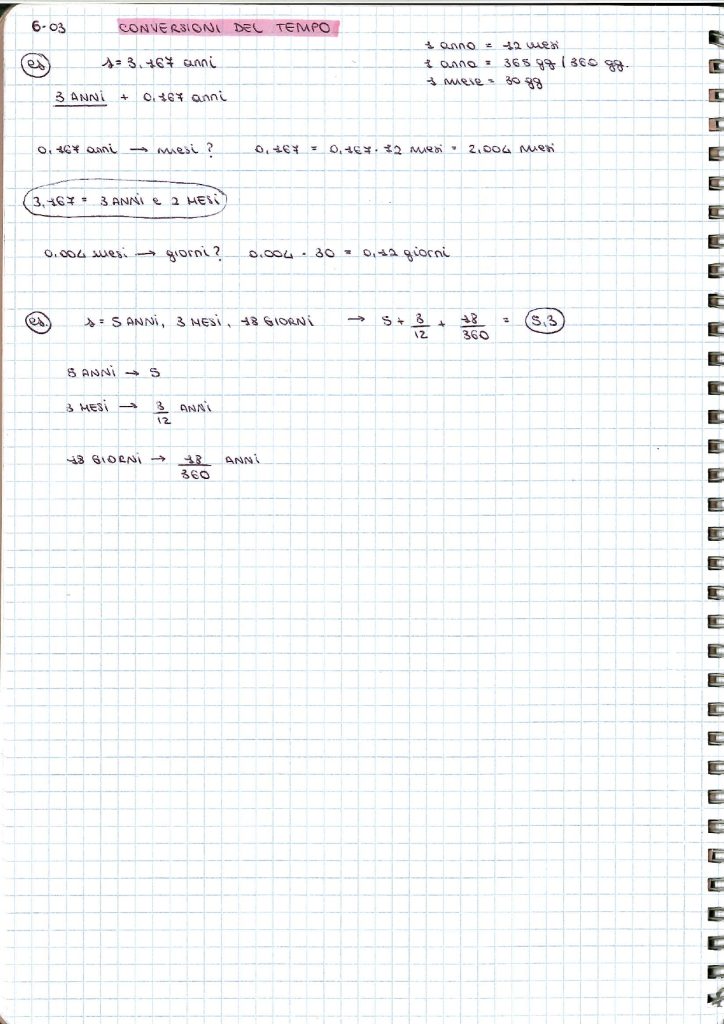 6-03 CONVERSIONI DEL TEMPO
1 anno = 12 mesi
es s = 3,167 anni
1 anno = 365 gg / 360 gg.
1 mese = 30 gg
3 ANNI + 0,167 anni
0,167 anni → mesi ? 0,167 = 0,167 · 12 mesi = 2,004 mesi
3,167 = 3 ANNI e 2 MESI
0,004 mesi → giorni ? 0,004 · 30 = 0,12 giorni
es. s = 5 ANNI, 3 MESI, 18 GIORNI → 5 + 3/12 + 18/360 = 5,3
5 ANNI → 5
3 MESI → 3/12 ANNI
18 GIORNI → 18/360 ANNI